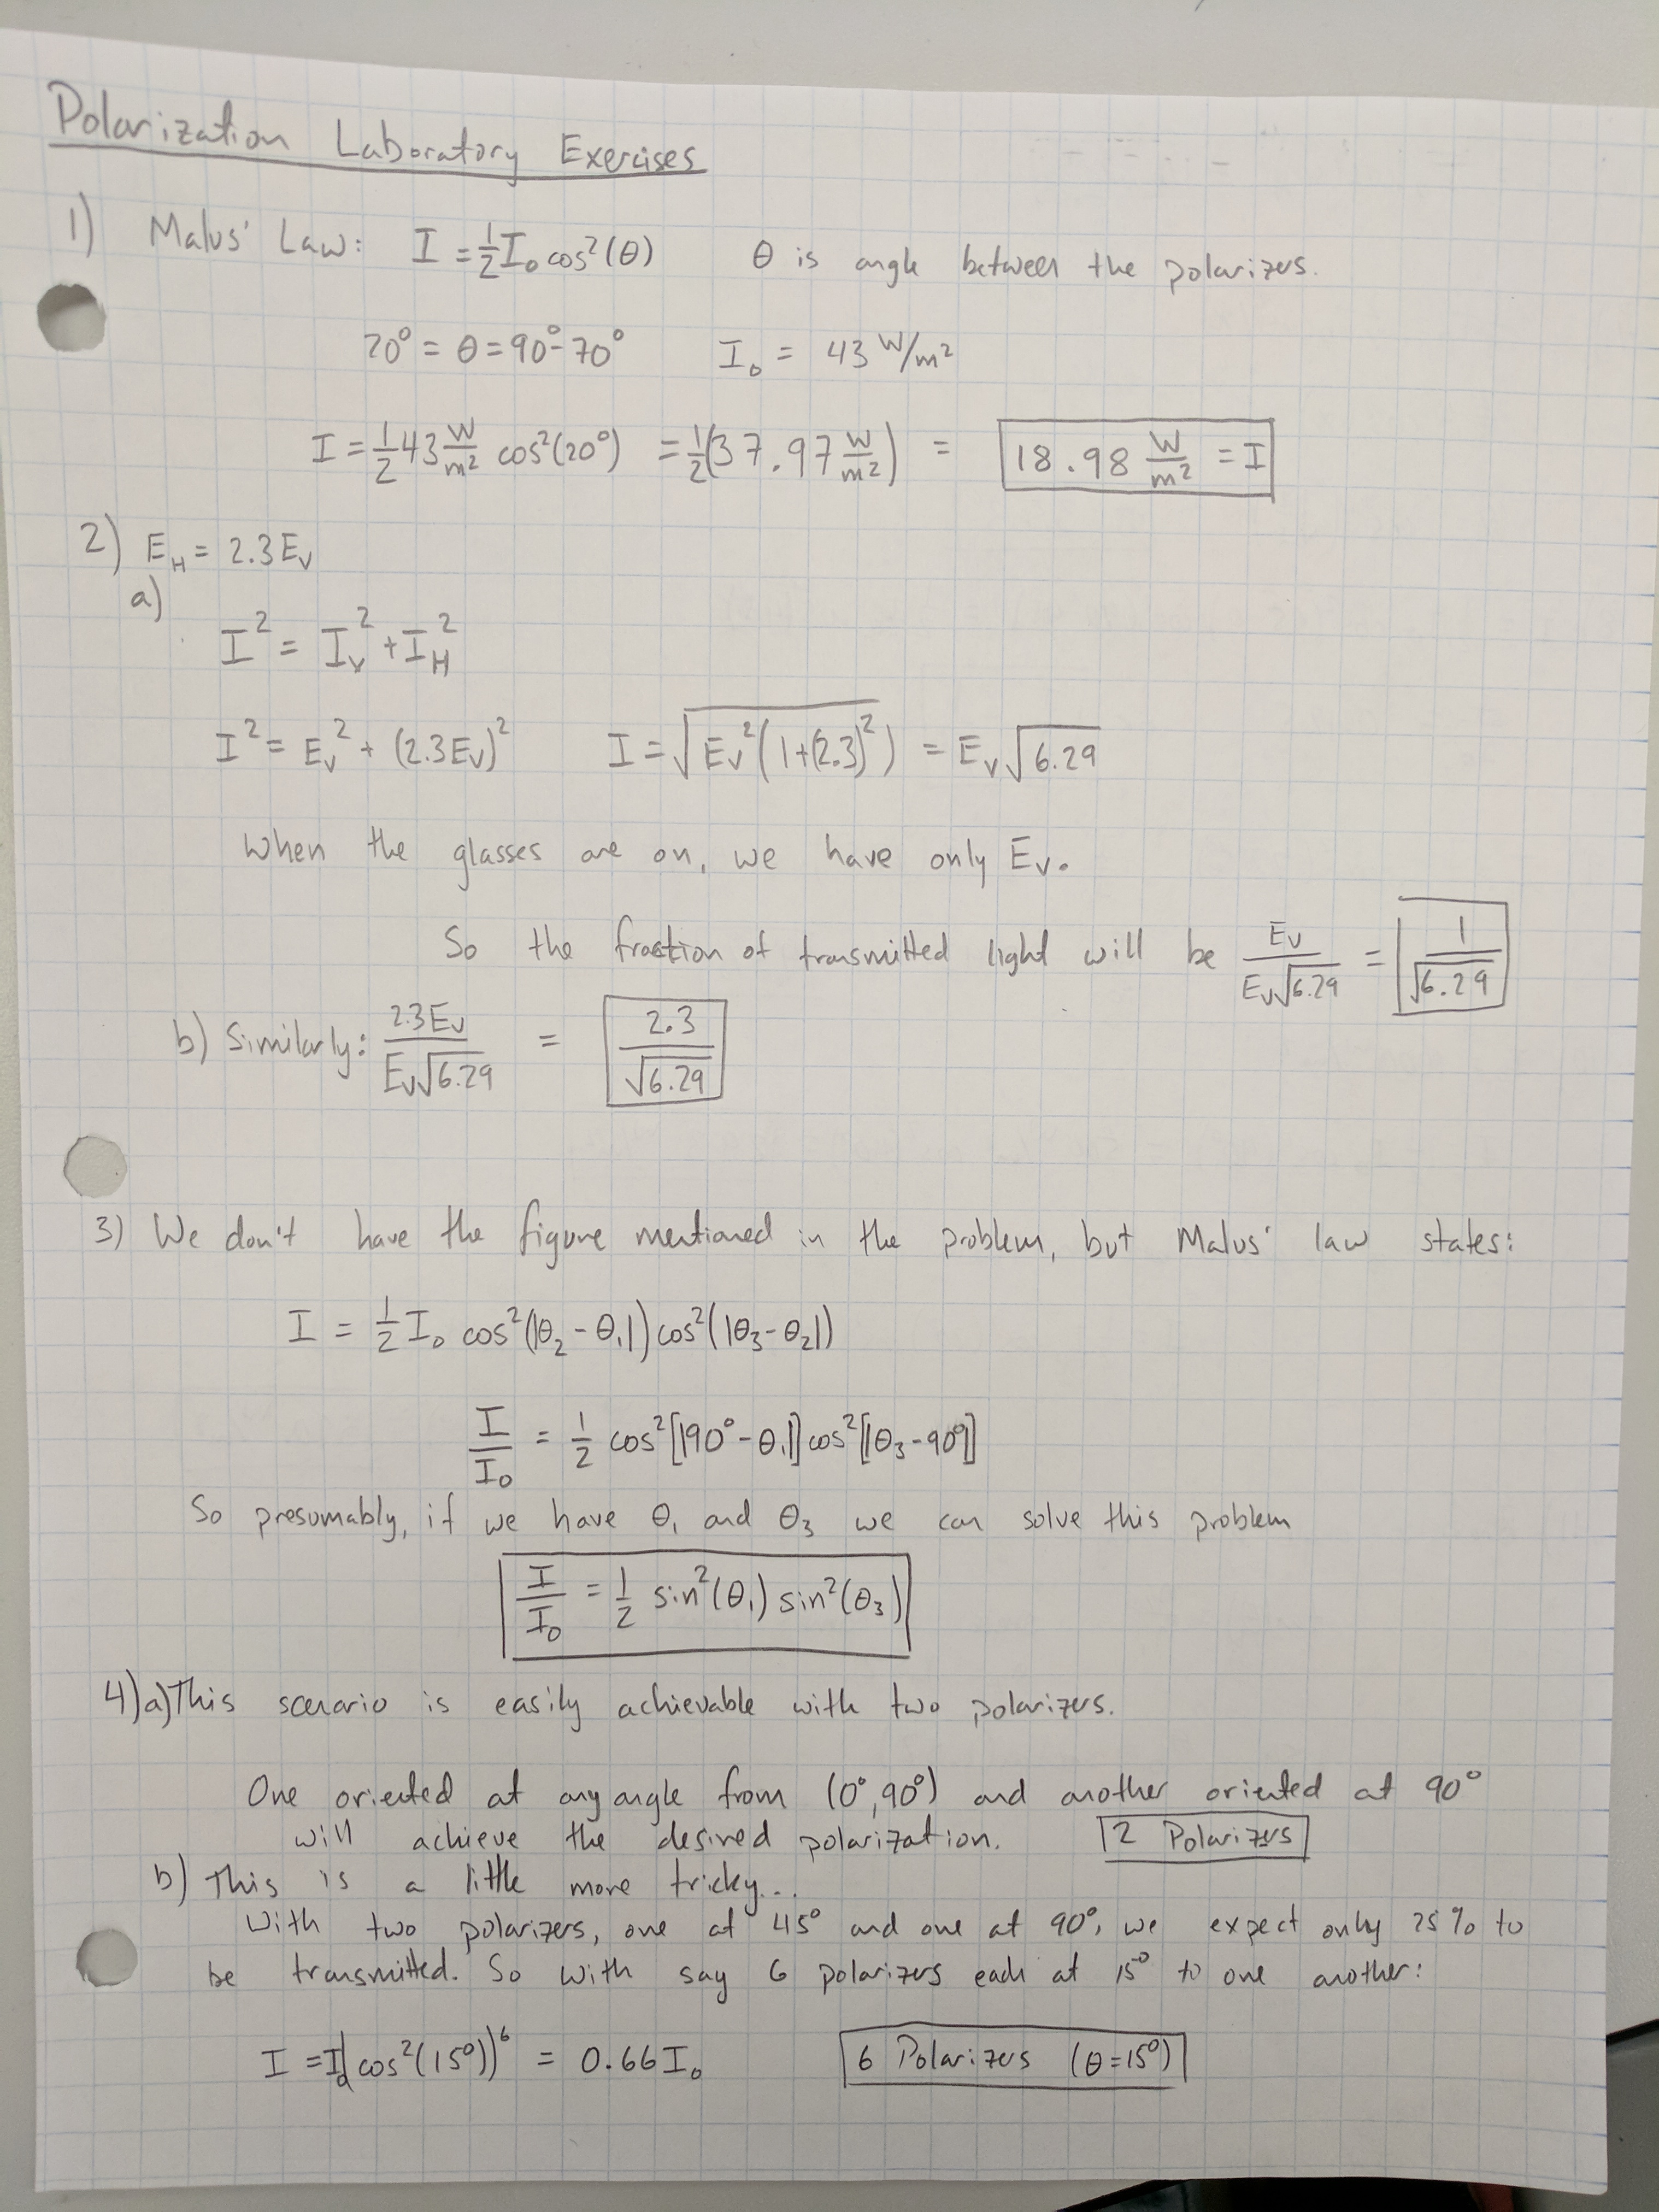 Polarization Laboratory Exercises
1) Malus' Law: I = 1/2 I₀ cos²(θ) θ is angle between the polarizers.
20° = θ = 90° - 70° I₀ = 43 W/m²
I = 1/2 43 W/m² cos²(20°) = 1/2(37.97 W/m²) = 18.98 W/m² = I
2) E_H = 2.3E_V
a)
I² = I_V² + I_H²
I² = E_V² + (2.3E_V)² I = √(E_V²(1+(2.3)²)) = E_V√6.29
When the glasses are on, we have only E_V.
So the fraction of transmitted light will be E_V/(E_V√6.29) = 1/√6.29
b) Similarly: 2.3E_V/(E_V√6.29) = 2.3/√6.29
3) We don't have the figure mentioned in the problem, but Malus' law states:
I = 1/2 I₀ cos²(|θ₂ - θ₁|) cos²(|θ₃ - θ₂|)
I/I₀ = 1/2 cos²[|90° - θ₁|] cos²[|θ₃ - 90°|]
So presumably, if we have θ₁ and θ₃ we can solve this problem
I/I₀ = 1/2 sin²(θ₁) sin²(θ₃)
4) a) This scenario is easily achievable with two polarizers.
One oriented at any angle from (0°, 90°) and another oriented at 90°
will achieve the desired polarization. 2 Polarizers
b) This is a little more tricky...
With two polarizers, one at 45° and one at 90°, we expect only 25% to
be transmitted. So with say 6 polarizers each at 15° to one another:
I = I₀(cos²(15°))⁶ = 0.66I₀ 6 Polarizers (θ=15°)